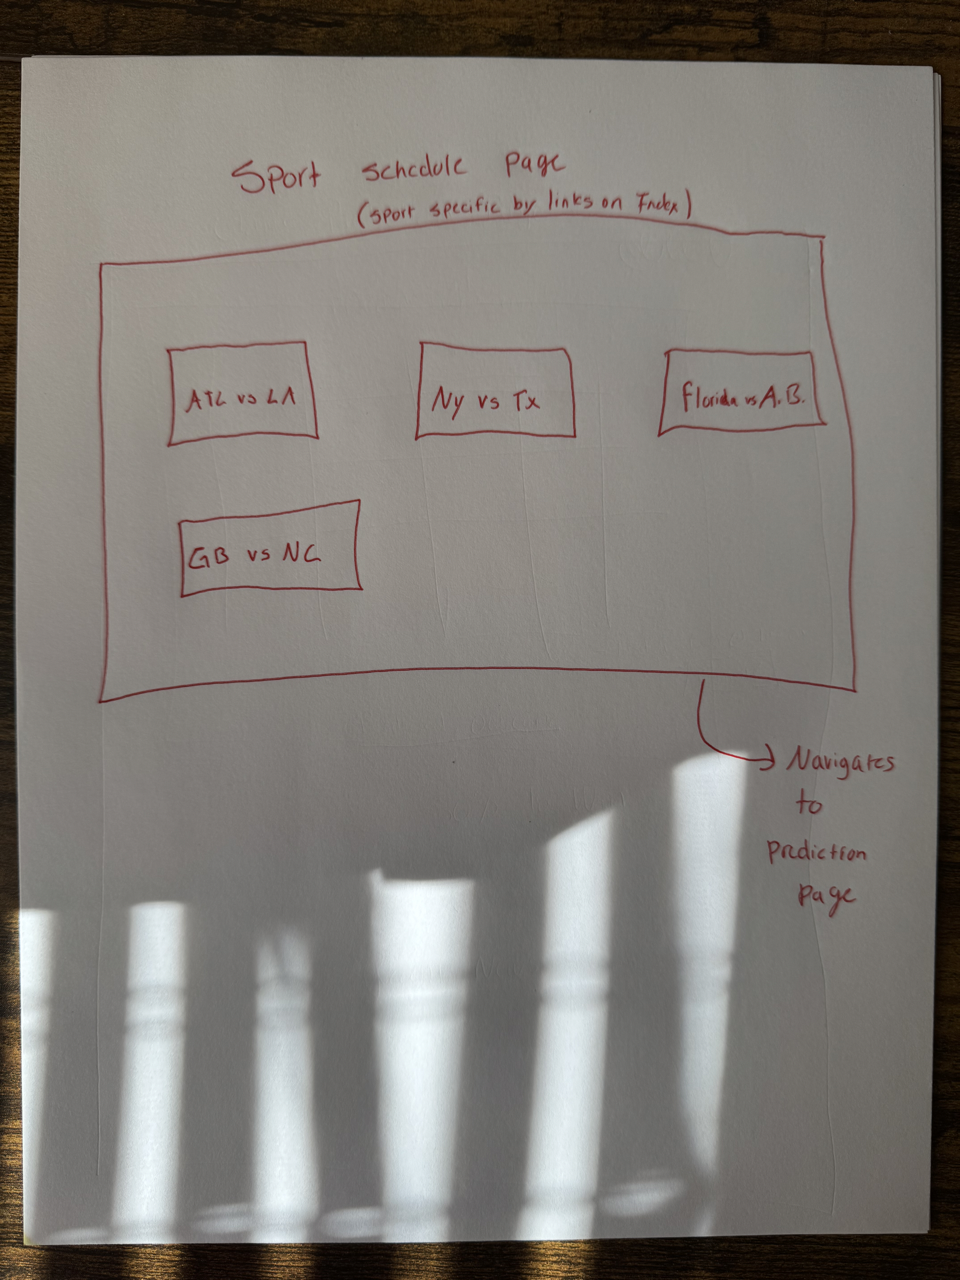 Sport schedule page
(sport specific by links on Index)
ATL vs LA
Ny vs Tx
Florida vs A.B.
GB vs NC
Navigates
to
prediction
page